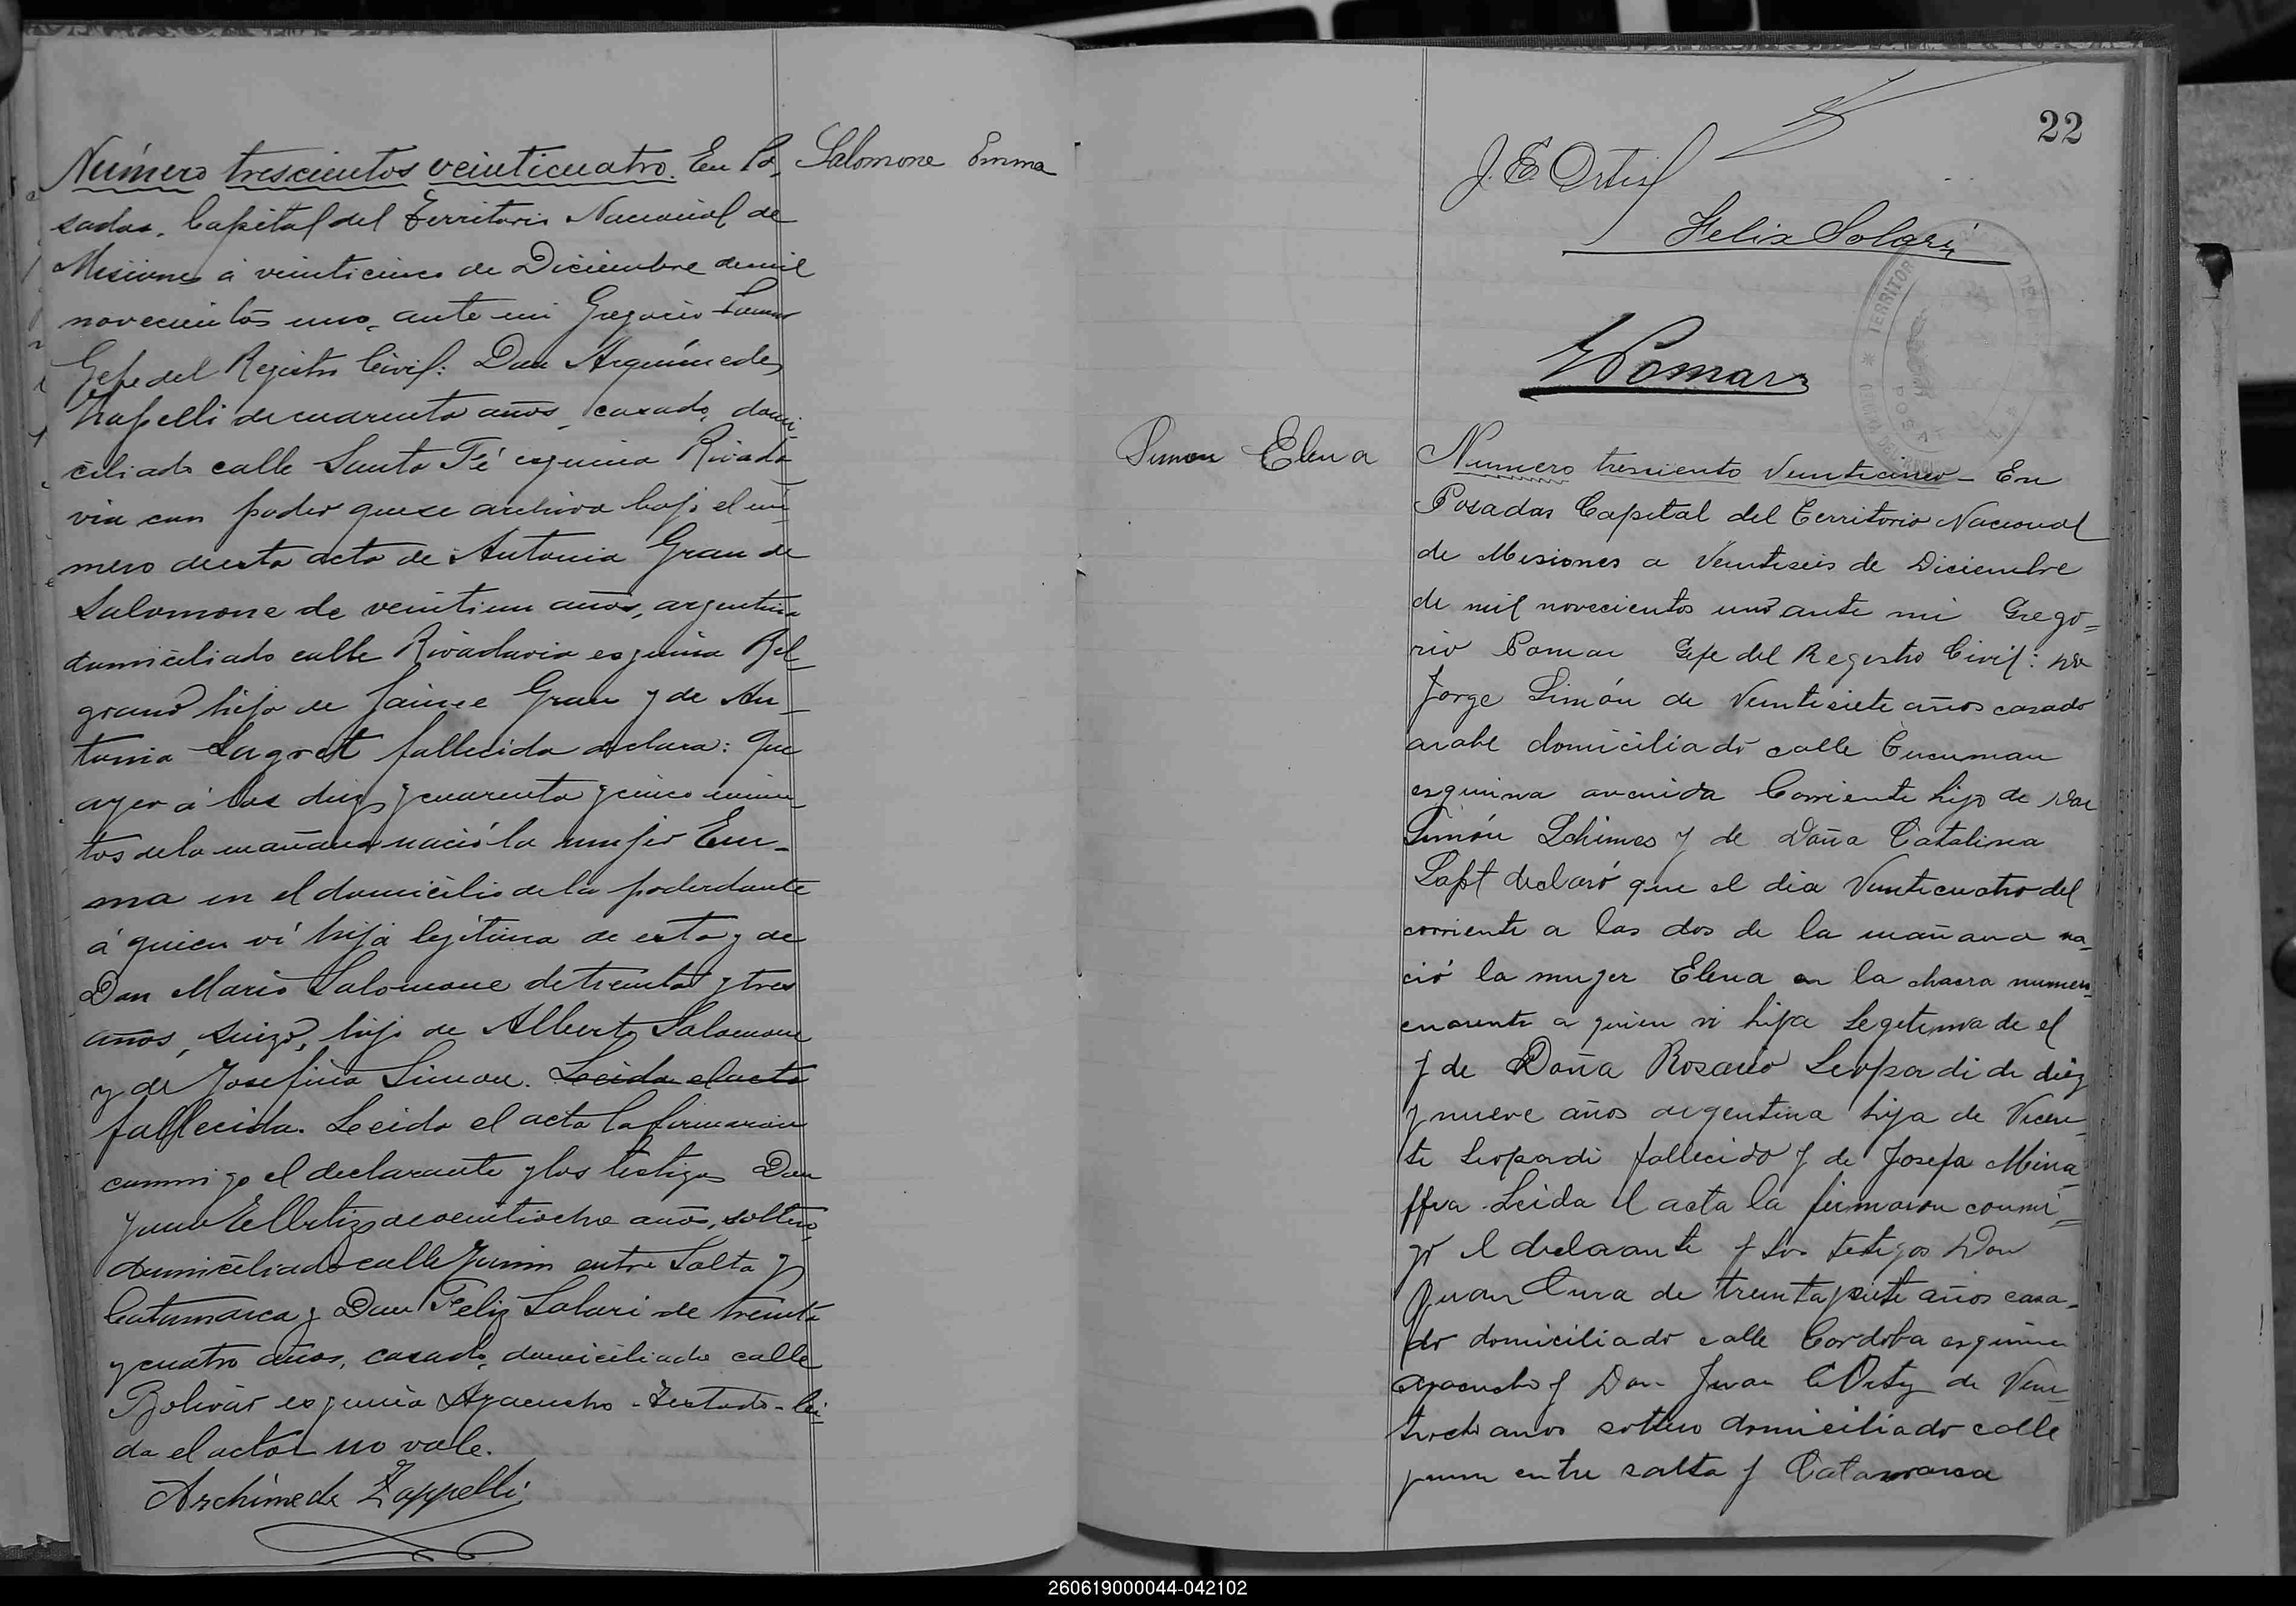 Número trescientos veinticuatro. En Po-
sadas, Capital del Territorio Nacional de
Misiones á veinticinco de Diciembre de mil
novecientos uno, ante mi Gregorio Pomar
Gefe del Registro Civil: Don Arquímedes
Zapelli de cuarenta años, casado, domi-
ciliado calle Santa Fé esquina Rivada-
via con poder que se archiva bajo el nú-
mero de esta acta de Antonia Grau de
Salomone de veintiun años, argentina
domiciliado calle Rivadavia esquina Bel-
grano hija de Jaime Grau y de An-
tonia fallecida declara: Que
ayer á las diez y cuarenta y cinco minu-
tos de la mañana nació la mujer Em-
ma en el domicilio de la poderdante
á quien ví hija legítima de esta y de
Don Mario Salomone de treinta y tres
años, suizo, hijo de Alberto Salomone
y de Josefina Simon. Leida el acta
fallecida. Leida el acta la firmaron
conmigo el declarante y los testigos Don
Juan E Ortiz de veintiocho años, soltero,
domiciliado calle Junin entre Salta y
Catamarca y Don Feliz Solari de treinta
y cuatro años, casado, domiciliado calle
Bolivar esquina Ayacucho - Testado - lei-
da el acta no vale.
Archimede Zappelli
Salomone Emma
22
J. E. Ortiz
Felix Solari
G Pomar
TERRITOR
Simon Elena
Numero tresciento Veinticinco - En
Posadas Capital del Territorio Nacional
de Misiones a Veintiseis de Diciembre
de mil novecientos uno ante mi Grego-
rio Pomar Gefe del Registro Civil: Don
Jorge Simón de Veintisiete años casado
arabe domiciliado calle Tucuman
esquina avenida Corriente hijo de Don
Simón Schimes y de Doña Catalina
declaró que el dia Veinticuatro del
corriente a las dos de la mañana na-
ció la mujer Elena en la chacra numero
cuarenta a quien vi hija Legetima de el
y de Doña Rosario Leopardi de diez
y nueve años argentina hija de Vicen-
te Leopardi fallecido y de Josefa Mina-
Leida el acta la firmaron conmi-
go el declarante y los testigos Don
Juan Cura de treinta y siete años casa-
do domiciliado calle Cordoba esquina
ayacucho y Don Juan E Ortiz de Vein-
tiocho años soltero domiciliado calle
junin entre salta y Catamarca
260619000044-042102